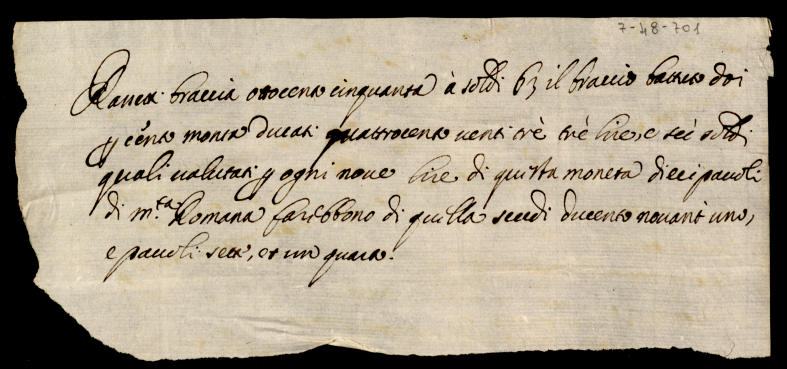 7-48-701
Rauen braccia ottocento cinquanta à soldi 63 il braccio battuto doi
p cento monta ducati quattrocento venti trè trè lire, e sei soldi
quali ualutati p ogni noue lire di questa moneta dieci pauoli
di m.ta Romana farebbono di quella scudi ducento nouant'uno,
e pauoli sette, et un quarto.